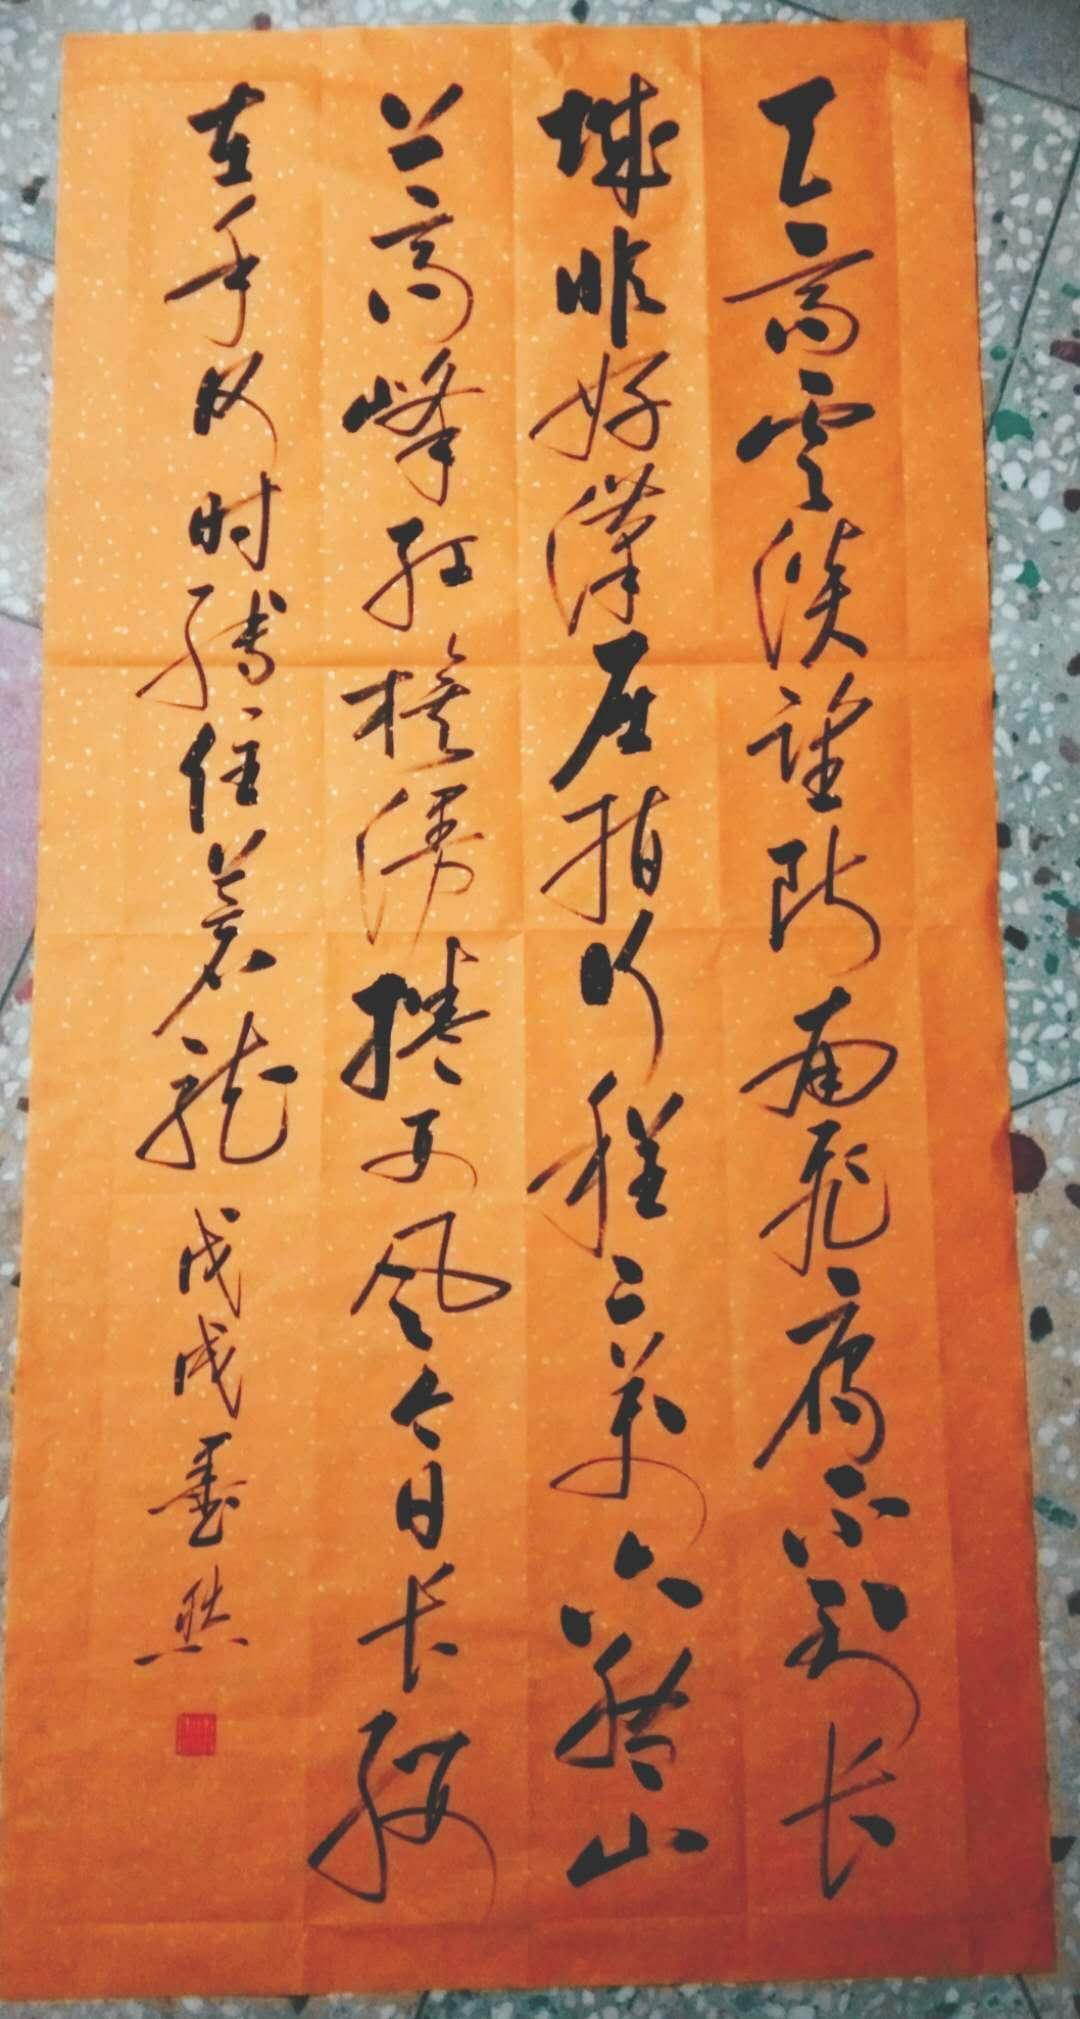 天高雲淡望断南飛雁不到长
城非好漢屈指行程二萬六盤山
上高峰红旗漫捲西风今日长缨
在手何时缚住蒼龍戊戌墨